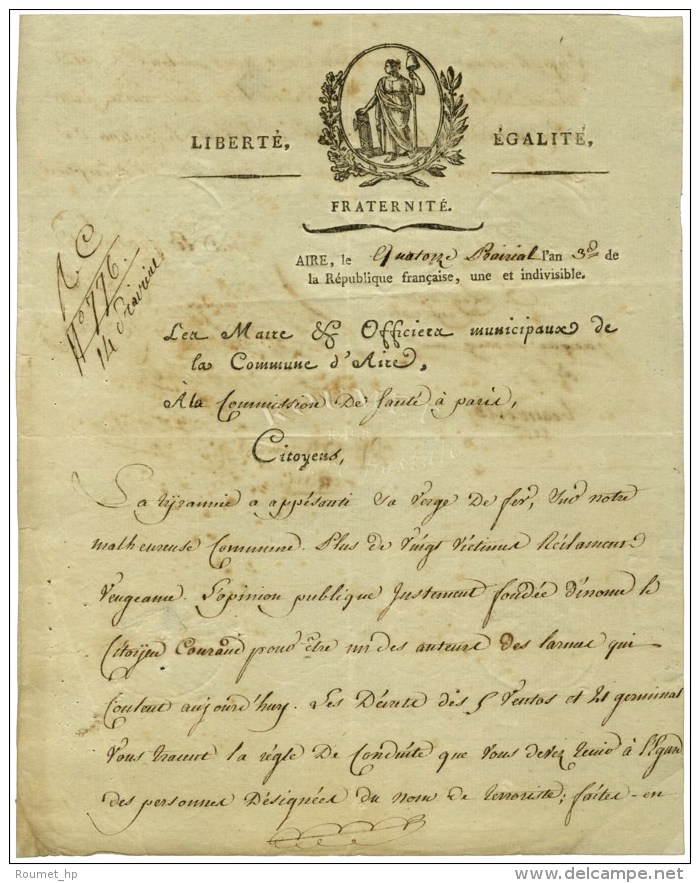 LIBERTÉ, ÉGALITÉ,
FRATERNITÉ.
AIRE, le Quatorze Prairial l'an 3e de
la République française, une et indivisible.
N° 776.
14 Prairial
Les Maire & Officiers municipaux de
la Commune d'Aire,
À la Commission De Santé à paris,
Citoyens,
La tyrannie a appésanti sa verge De fer, sur notre
malheureuse Commune. Plus de Vingt Victimes Réclament
Vengeance. L'opinion publique Justement fondée dénonce le
Citoyen Couraud pour être un des auteurs des larmes qui
Coulent aujourd'huy. Les Décrets des 5 Ventos et 21 germinal
Vous tracent la règle De Conduite que Vous devez tenir à l'Egard
des personnes Désignées du nom de terroriste; faites-en
Roumet_hp
©delcampe.net